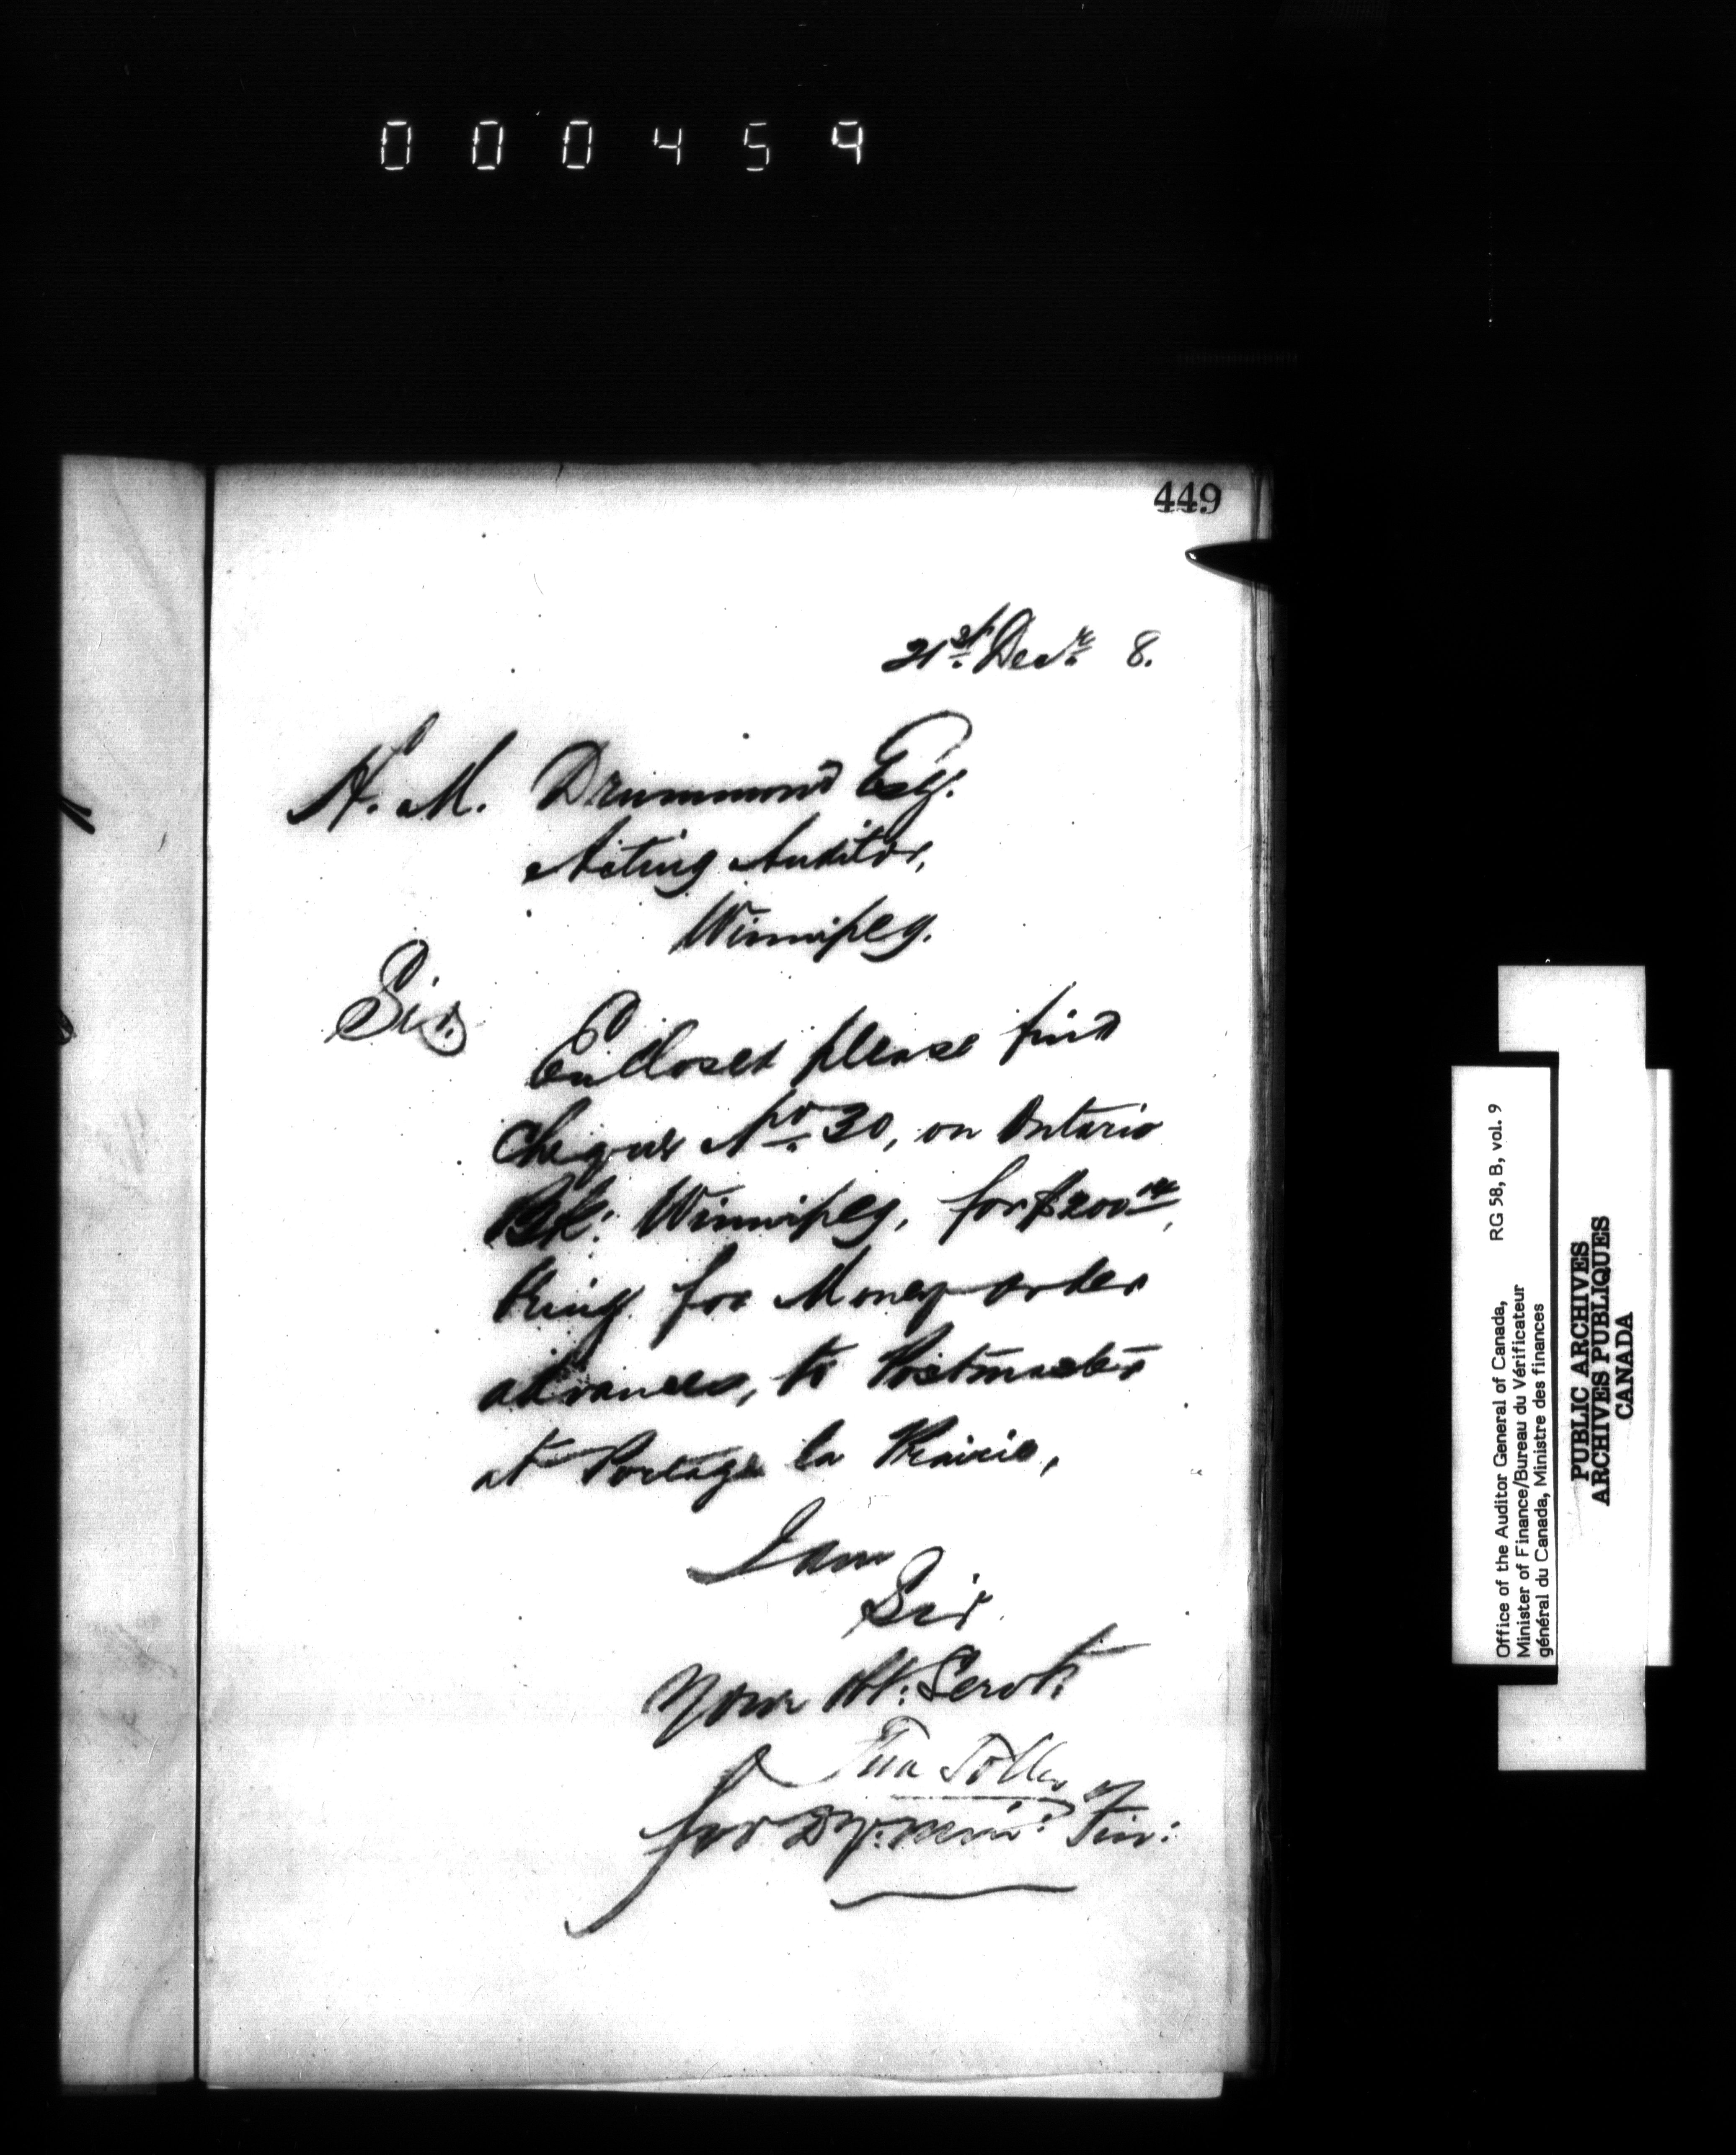 000459
449
21st Decr. 8.
H. M. Drummond Esq.
Acting Auditor,
Winnipeg.
Sir,
Enclosed please find
cheque No. 30, on Ontario
Bk: Winnipeg, for $200
being for Money order
advances, to Postmaster
at Portage la Prairie,
I am
Sir
Your Ob: Servt:
for Dy: Min: of Fin:
Office of the Auditor General of Canada, RG 58, B, vol. 9
Minister of Finance/Bureau du Vérificateur
général du Canada, Ministre des finances
PUBLIC ARCHIVES
ARCHIVES PUBLIQUES
CANADA